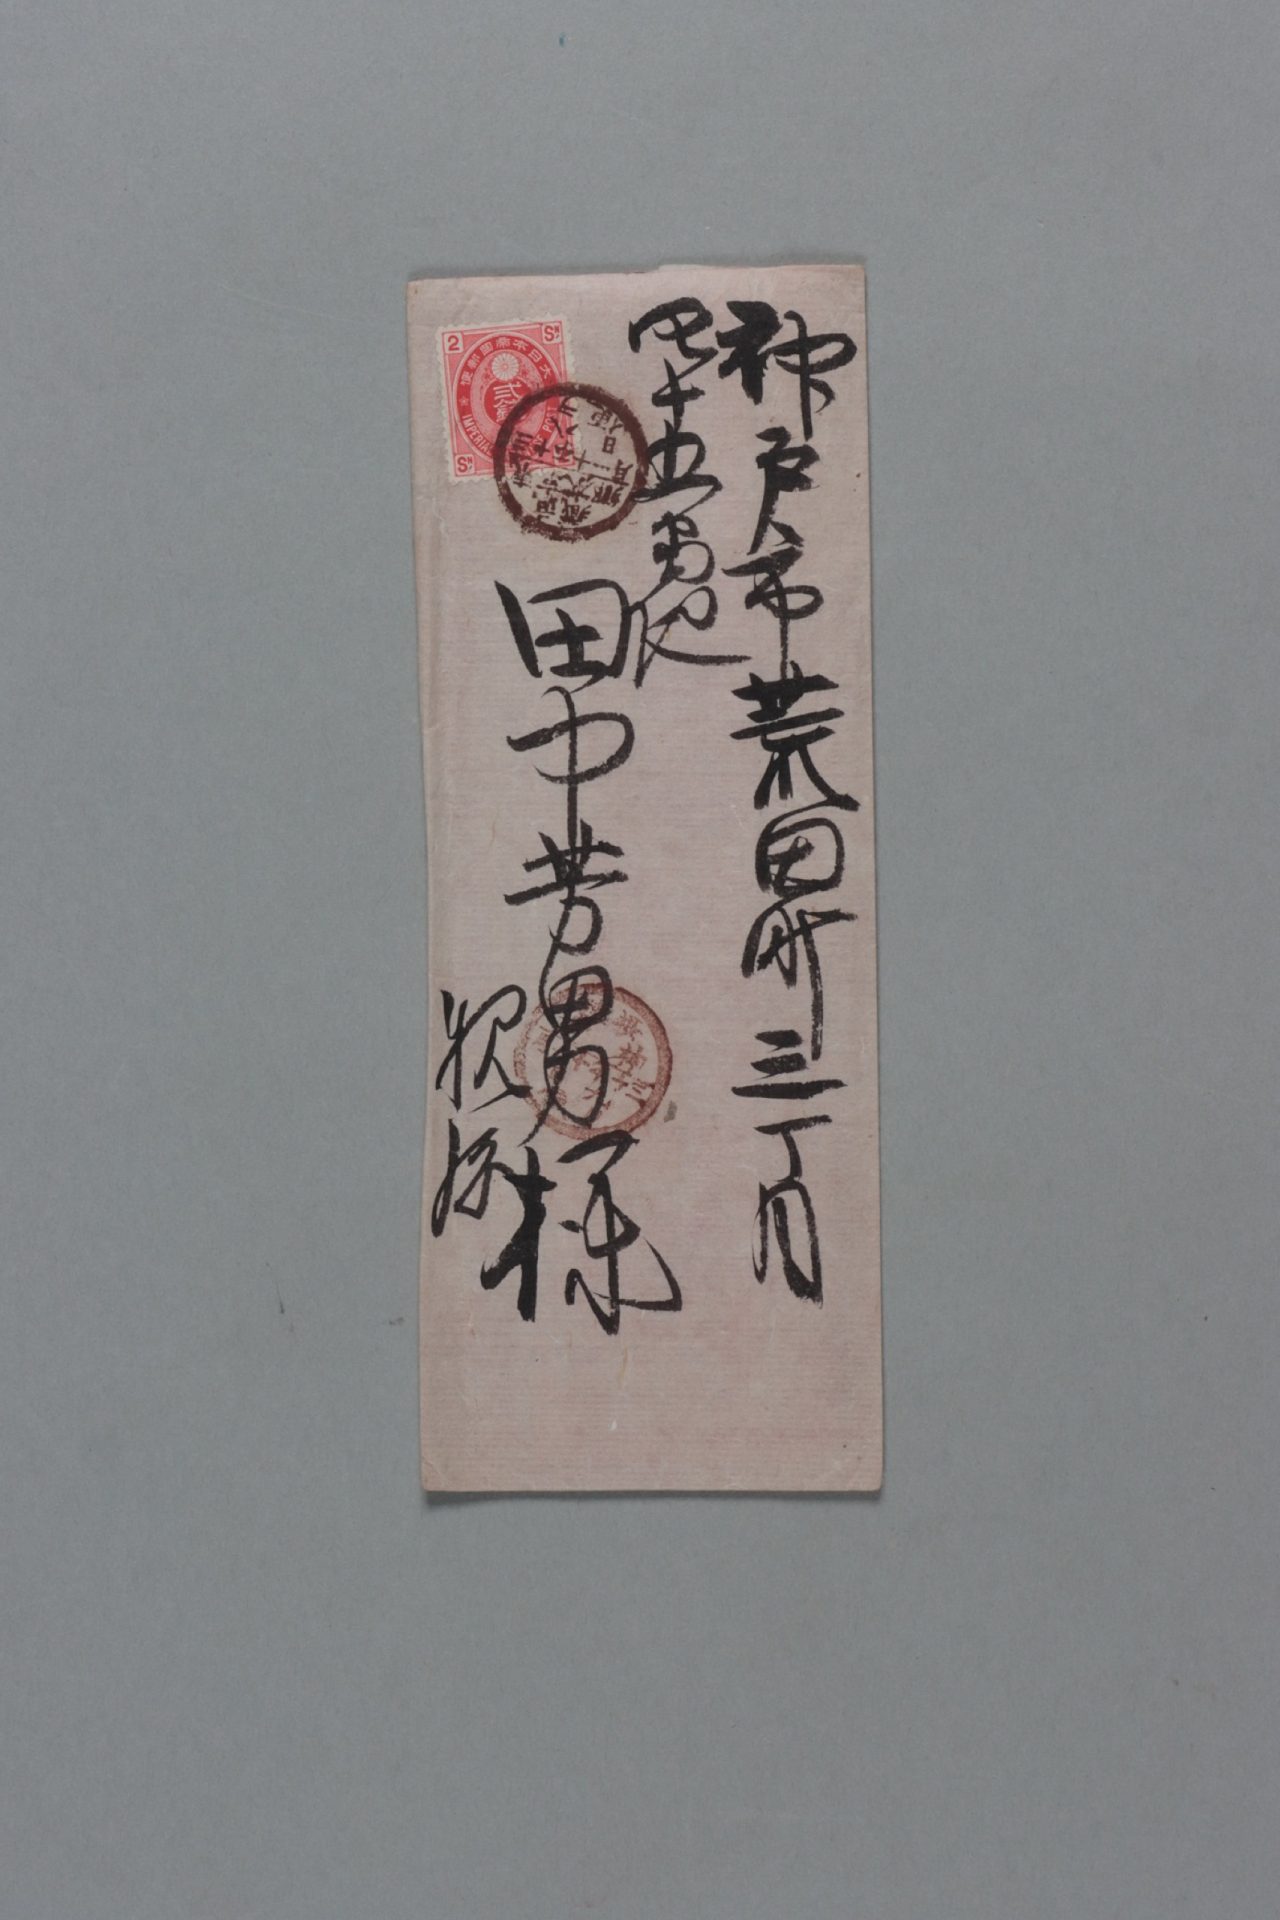 神戸市荒田町三丁目
四十五番地
田中芳男様
親展
大日本帝國郵便
貳銭
IMPERIAL
2 SN
SN